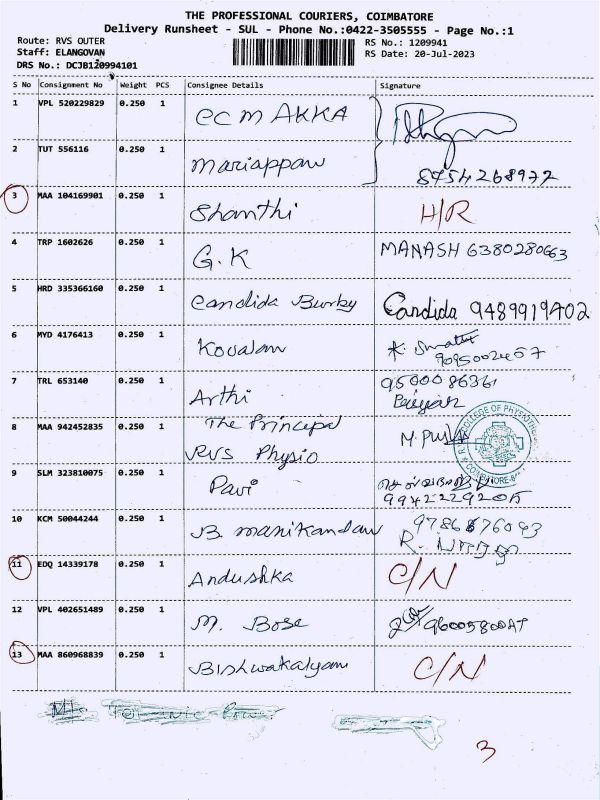 THE PROFESSIONAL COURIERS, COIMBATORE
Delivery Runsheet - SUL - Phone No.:0422-3505555 - Page No.:1
Route: RVS OUTER RS No.: 1209941
Staff: ELANGOVAN RS Date: 20-Jul-2023
DRS No.: DCJB120994101
S No Consignment No Weight PCS Consignee Details Signature
1 VPL 520229829 0.250 1 CC M AKKA
2 TUT 556116 0.250 1 Mariappan 8754268977
3 MAA 104169901 0.250 1 Shanthi H/R
4 TRP 1602626 0.250 1 G.K MANASH 6380280663
5 HRD 335366160 0.250 1 Candida Burby Candida 9489919702
6 MYD 4176413 0.250 1 Kovalam
9095002457
7 TRL 653140 0.250 1 Arthi 9500086361
8 MAA 942452835 0.250 1 The Principal
RVS Physio
9 SLM 323810075 0.250 1 Pavi
10 KCM 50044244 0.250 1 B. Manikandan
11 EDQ 14339178 0.250 1 Andushka C/N
12 VPL 402651489 0.250 1 M. Bose
13 MAA 860968839 0.250 1 Bishwakalyani C/N
3